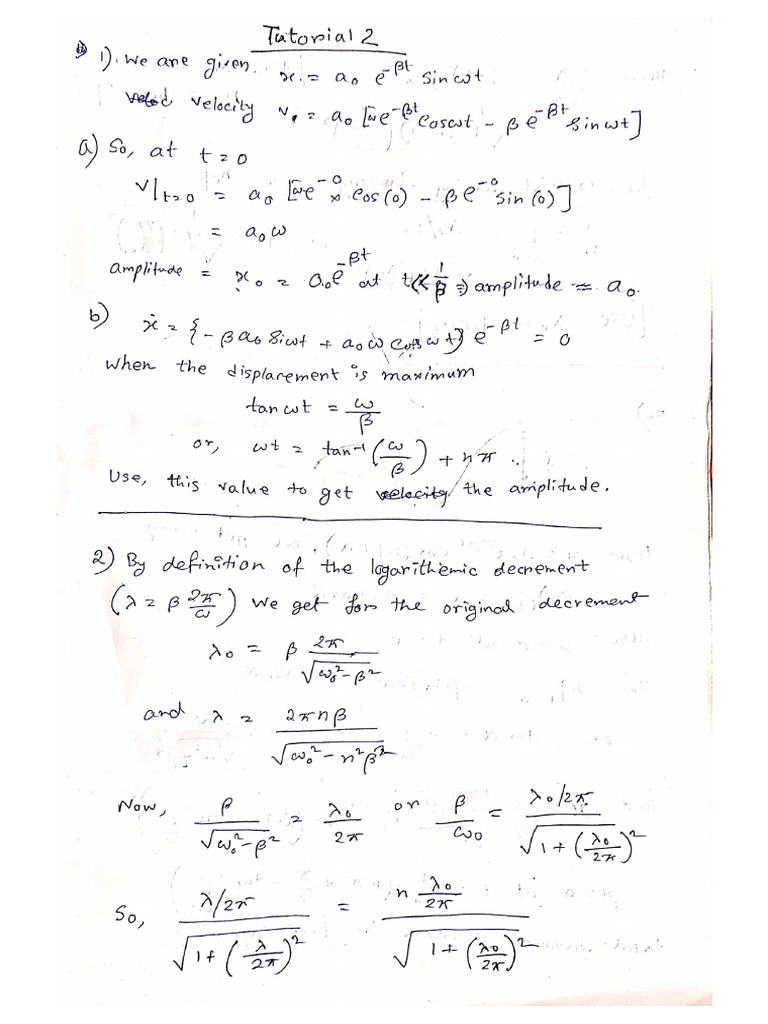 Tutorial 2
1). We are given x = a₀ e^{-βt} sin ωt
velocity v, = a₀ [ωe^{-βt} cosωt - β e^{-βt} sin ωt]
a) So, at t = 0
v|_{t=0} = a₀ [ωe^{-0} × cos (0) - β e^{-0} sin (0)]
= a₀ω
amplitude = x₀ = a₀e^{-βt} at t << 1/β => amplitude ≈ a₀.
b) ẋ = {-βa₀ Siωt + a₀ω cosωt} e^{-βt} = 0
when the displacement is maximum
tan ωt = ω/β
or, ωt = tan⁻¹ (ω/β) + nπ .
Use, this value to get the amplitude.
2) By definition of the logarithemic decrement
(λ = β 2π/ω) we get for the original decrement
λ₀ = β 2π/√(ω₀² - β²)
and λ = 2πnβ/√(ω₀² - n²β²)
Now, β/√(ω₀² - β²) = λ₀/2π or β/ω₀ = (λ₀/2π)/√(1 + (λ₀/2π)²)
So, (λ/2π)/√(1 + (λ/2π)²) = (n λ₀/2π)/√(1 + (λ₀/2π)²)